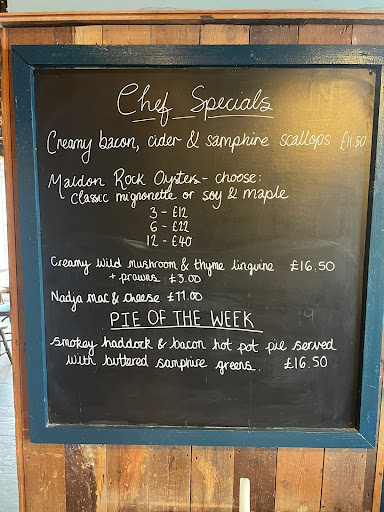 Chef Specials
Creamy bacon, cider & samphire scallops £11.50
Maldon Rock Oysters - choose:
Classic mignonette or soy & maple
3 - £12
6 - £22
12 - £40
Creamy wild mushroom & thyme linguine £16.50
+ prawns £3.00
Nadja mac & cheese £11.00
PIE OF THE WEEK
smokey haddock & bacon hot pot pie served
with buttered samphire greens. £16.50